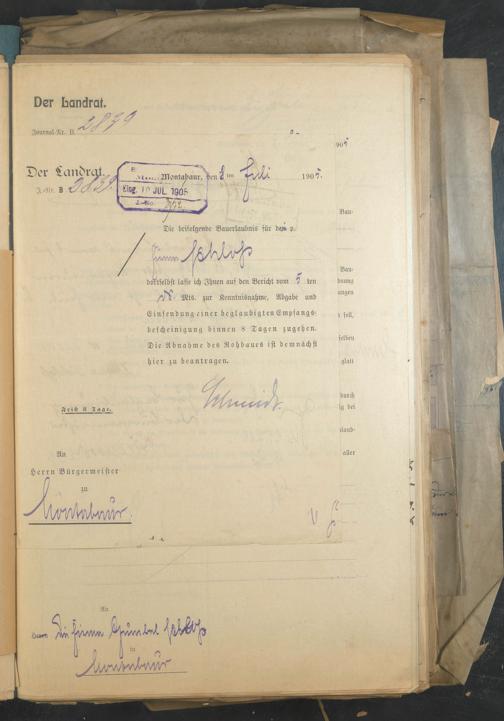 Der Landrat.
Journal-Nr. B. 2839
1905
Der Landrat.
J.-Nr. B 2839
Montabaur, den 8 ten Juli 1905.
Eing. 10 JUL. 1905
J.-No.
Bau-
Die beifolgende Bauerlaubnis für
Firma Schloß
dortselbst lasse ich Ihnen auf den Bericht vom 5 ten
ds. Mts. zur Kenntnisnahme, Abgabe und
Einsendung einer beglaubigten Empfangs-
bescheinigung binnen 8 Tagen zugehen.
Die Abnahme des Rohbaues ist demnächst
hier zu beantragen.
glatt
Schmidt.
Frist 8 Tage.
aller
An
Herrn Bürgermeister
zu
Montabaur.
An
Die Firma Gumbel Schloß
in
Montabaur